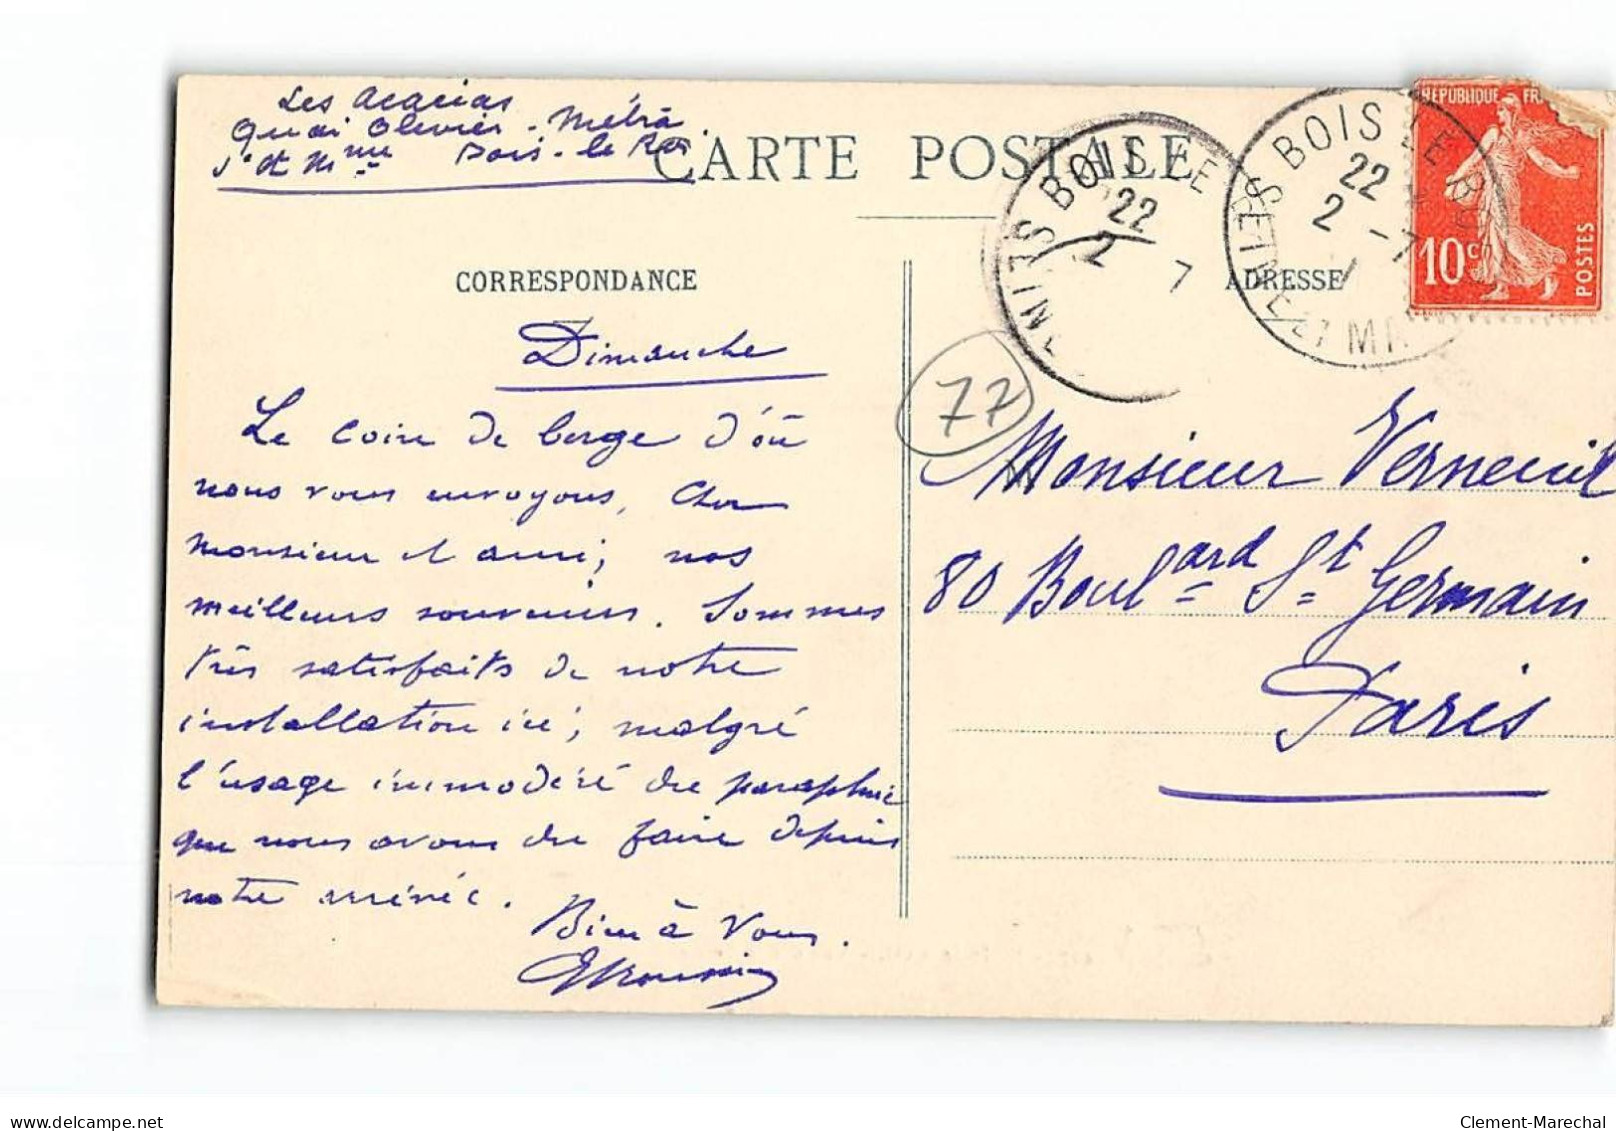 Les Acacias
Quai Olivier-Métra
S. et Mne Bois-le-Roi
CARTE POSTALE
CORRESPONDANCE
ADRESSE
BOIS LE
22
2 7
BOIS LE ROI
22
2 -7
SEINE ET M
REPUBLIQUE FR
10c
POSTES
77
Dimanche
Le coin de berge d'où
nous vous envoyons, cher
monsieur et ami; nos
meilleurs souvenirs. Sommes
très satisfaits de notre
installation ici; malgré
l'usage immodéré du parapluie
que nous avons du faire depuis
notre arrivée.
Bien à vous.
Monsieur Verneuil
80 Boulard St Germain
Paris
Clement-Marechal